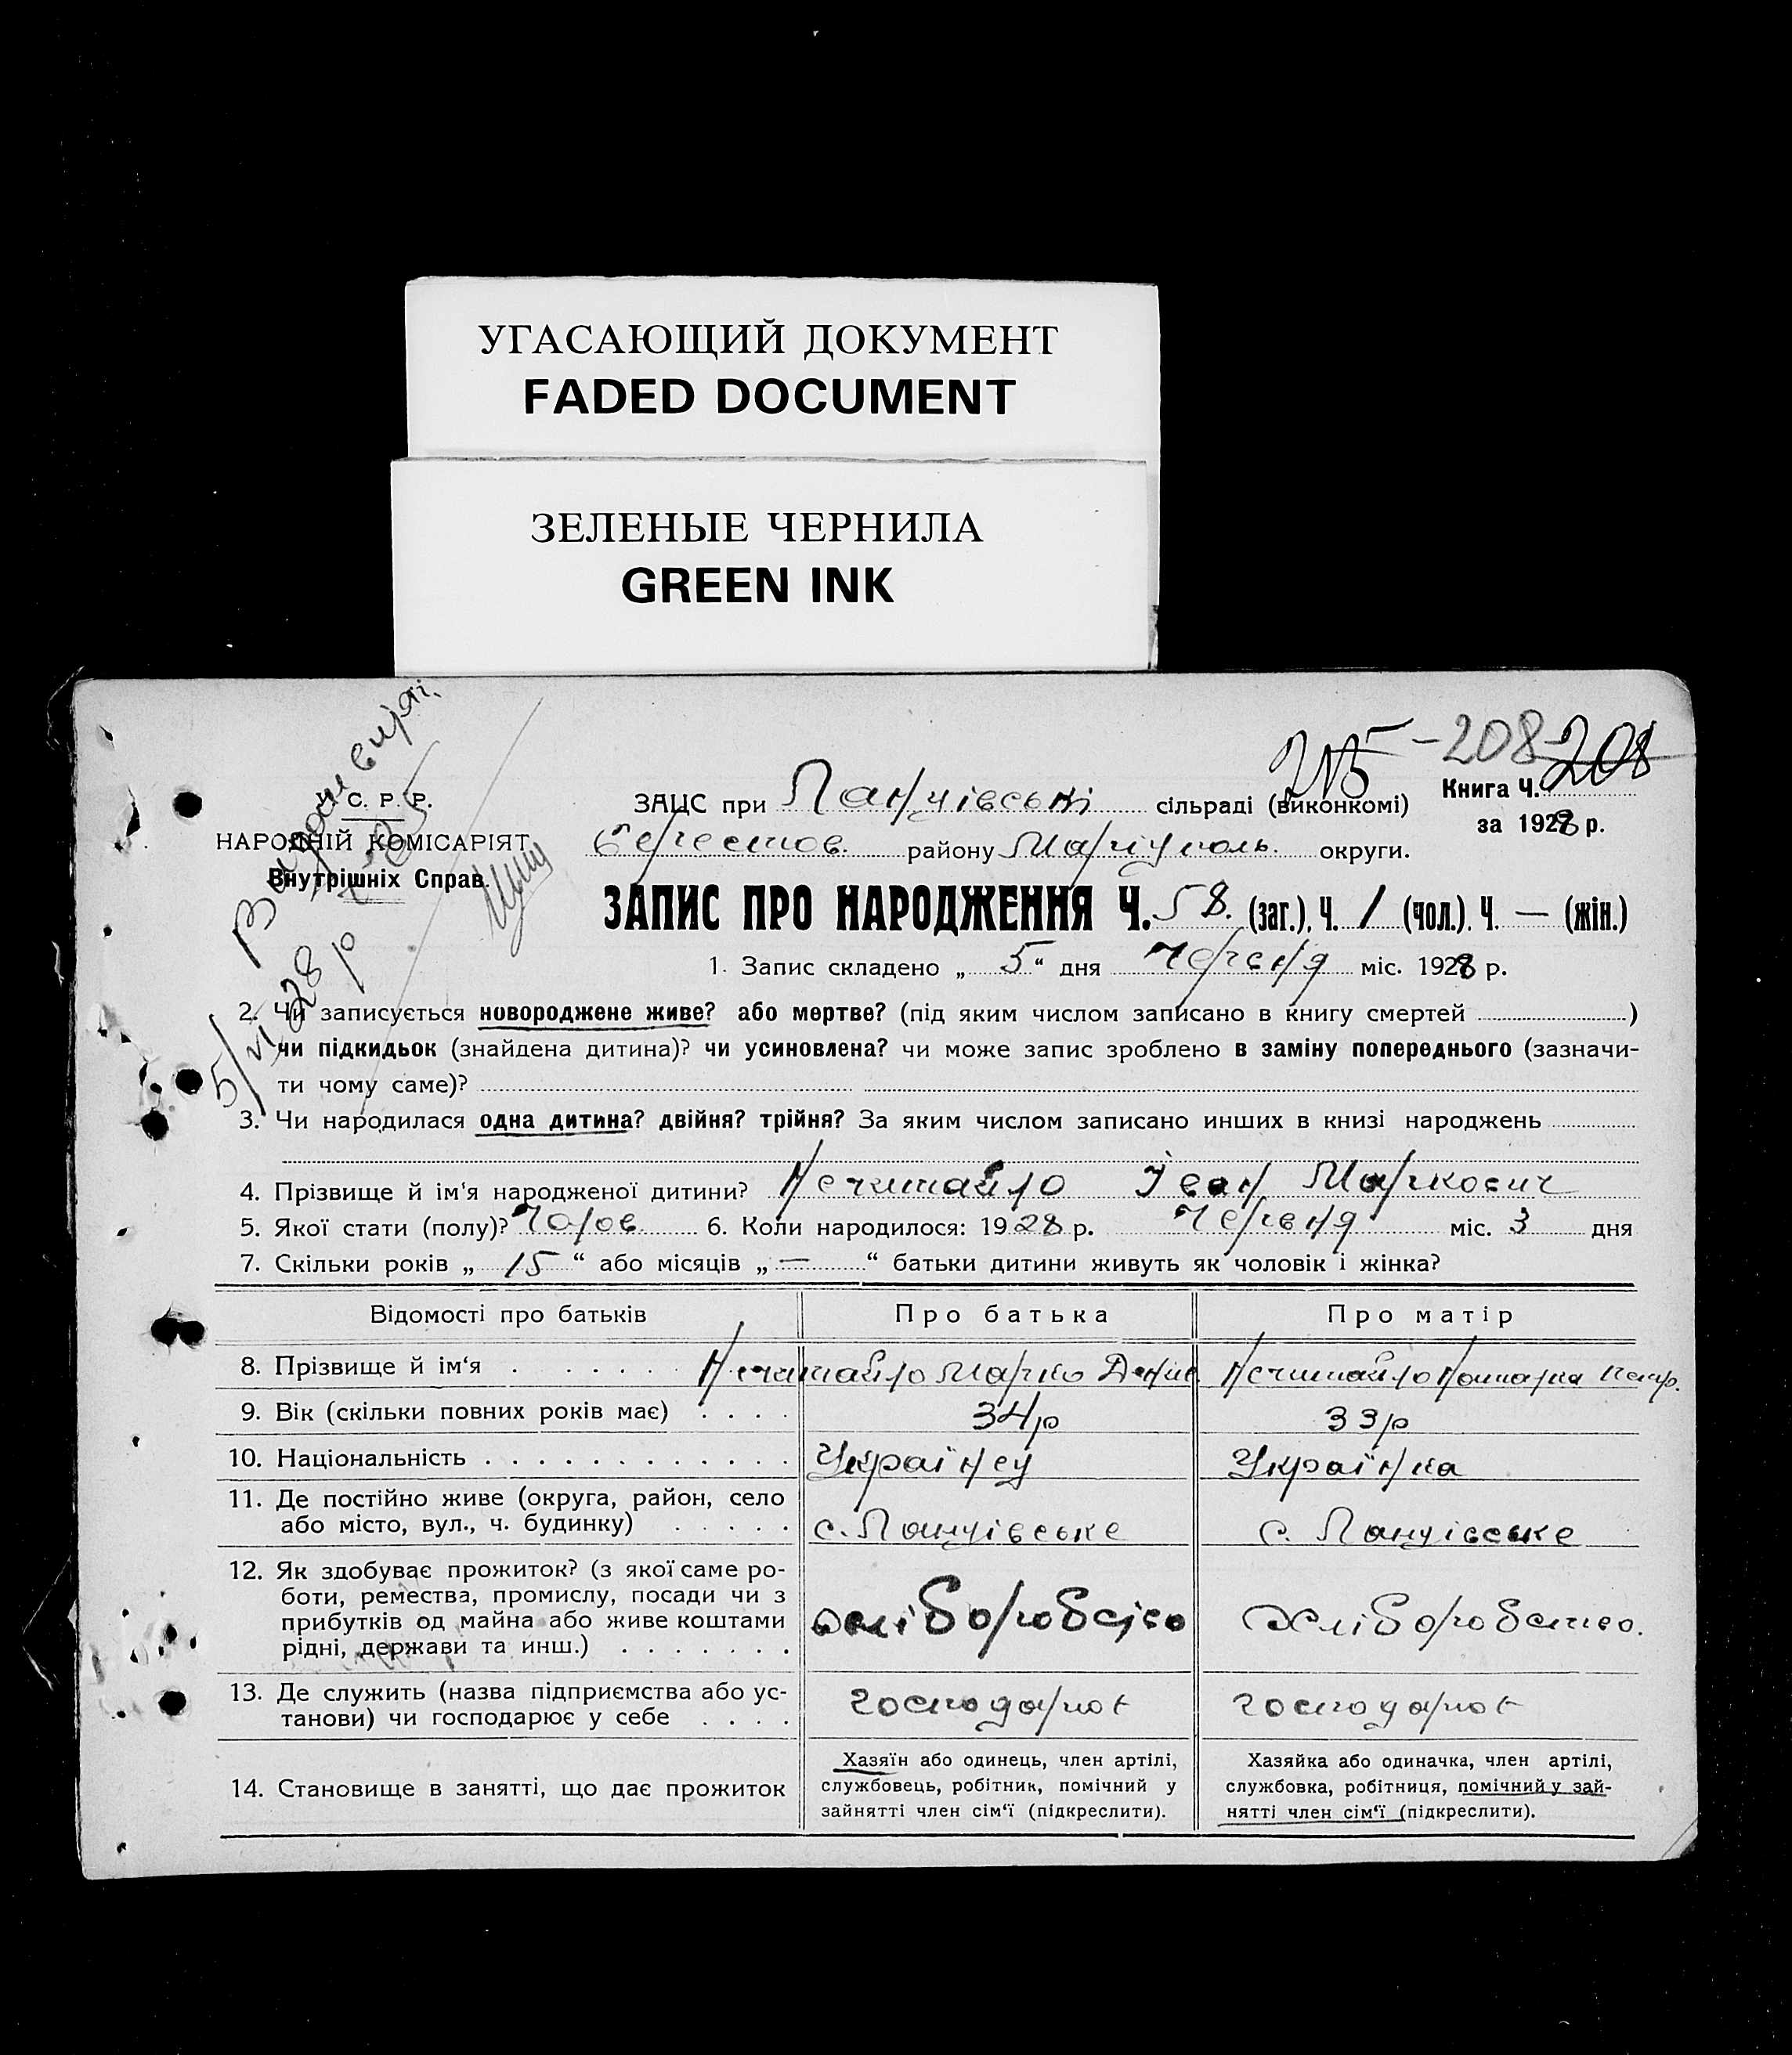 УГАСАЮЩИЙ ДОКУМЕНТ
FADED DOCUMENT
ЗЕЛЕНЫЕ ЧЕРНИЛА
GREEN INK
-208 208
У. С. Р. Р.
НАРОДНІЙ КОМІСАРІЯТ
Внутрішніх Справ.
5/VI 28 р
ЗАЦС при сільраді (виконкомі)
Книга Ч.
за 1928 р.
району Маріуполь. округи.
ЗАПИС ПРО НАРОДЖЕННЯ Ч. 58. (заг.). Ч. 1 (чол.). Ч. — (жін.)
1. Запис складено „ 5 “ дня Червня міс. 1928 р.
2. Чи записується новороджене живе? або мертве? (під яким числом записано в книгу смертей )
чи підкидьок (знайдена дитина)? чи усиновлена? чи може запис зроблено в заміну попереднього (зазначи-
ти чому саме)?
3. Чи народилася одна дитина? двійня? трійня? За яким числом записано инших в книзі народжень
4. Прізвище й ім‘я народженої дитини? Нечитайло Іван Маркович
5. Якої стати (полу)? Чолов. 6. Коли народилося: 1928 р. Червня міс. 3 дня
7. Скільки років „ 15 “ або місяців „ — “ батьки дитини живуть як чоловік і жінка?
Відомості про батьків Про батька Про матір
8. Прізвище й ім‘я Нечитайло Марко Денис Нечитайло
9. Вік (скільки повних років має) 34 р 33 р
10. Національність Українец Українка
11. Де постійно живе (округа, район, село
або місто, вул., ч. будинку)
12. Як здобуває прожиток? (з якої саме ро-
боти, ремества, промислу, посади чи з
прибутків од майна або живе коштами
рідні, держави та инш.) Хліборобство.
13. Де служить (назва підприємства або ус-
танови) чи господарює у себе господарює господарює
14. Становище в занятті, що дає прожиток
Хазяїн або одинець, член артілі,
службовець, робітник, помічний у
зайнятті член сім‘ї (підкреслити).
Хазяйка або одиначка, член артілі,
службовка, робітниця, помічний у зай-
нятті член сім‘ї (підкреслити).